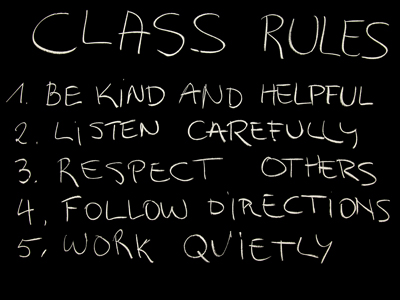 CLASS RULES
1. BE KIND AND HELPFUL
2. LISTEN CAREFULLY
3. RESPECT OTHERS
4. FOLLOW DIRECTIONS
5. WORK QUIETLY